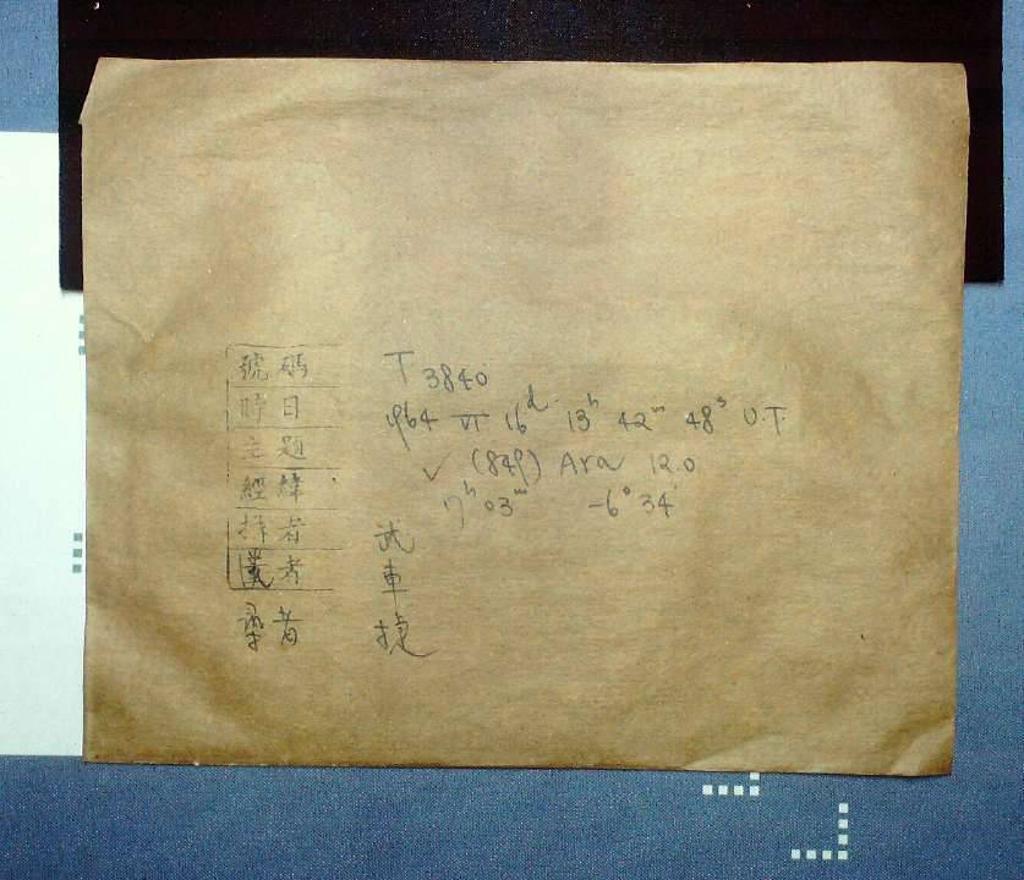 號碼 T 3840
時日 1964 VI 16d 13h 42m 48s U.T.
主題 √ (849) Ara 12.0
經緯 17h 03m -6° 34'
攝者 武
者 車
者 捷